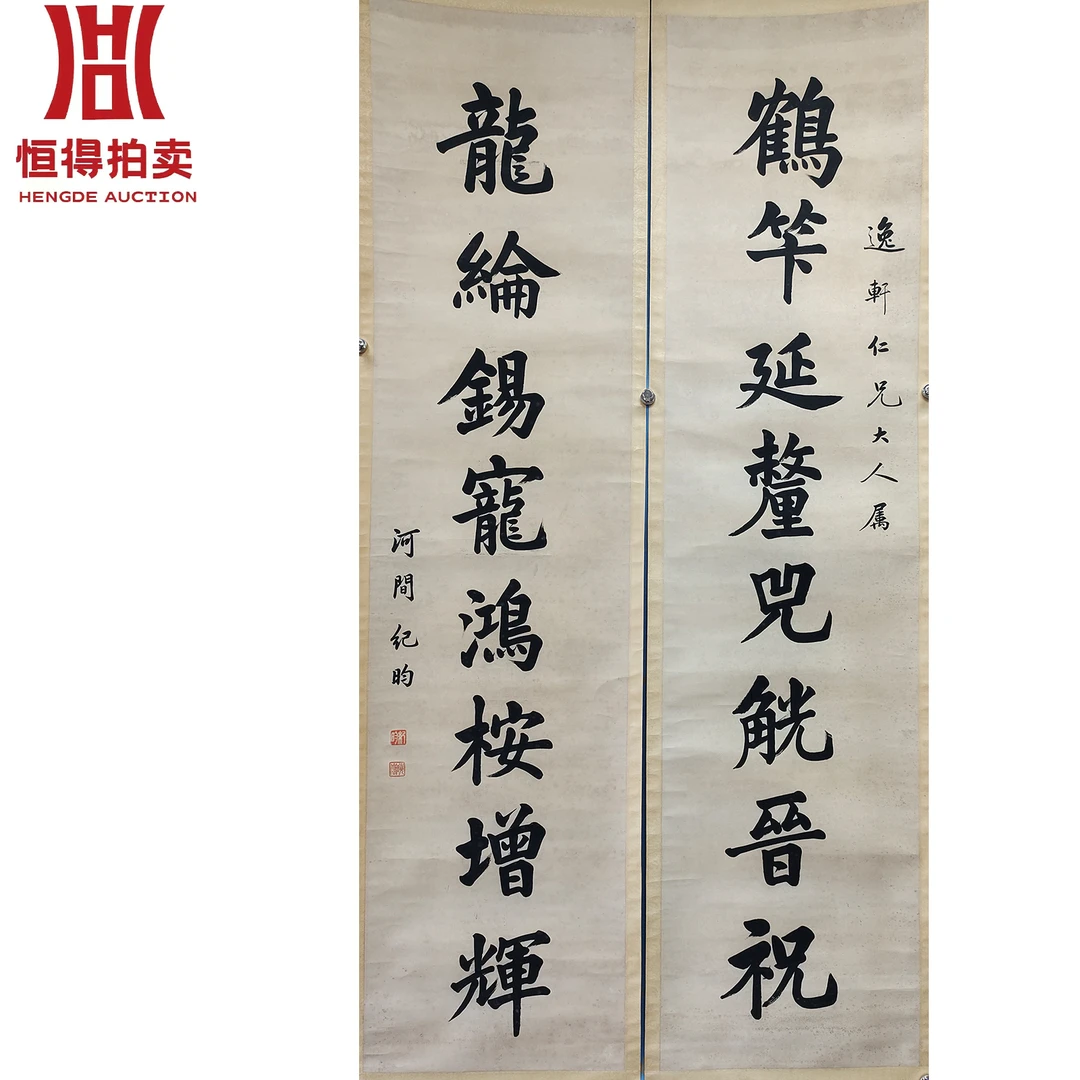 恒得拍卖
HENGDE AUCTION
逸軒仁兄大人属
鶴笇延釐兕觥晉祝
龍綸錫寵鴻桉增輝
河間紀昀